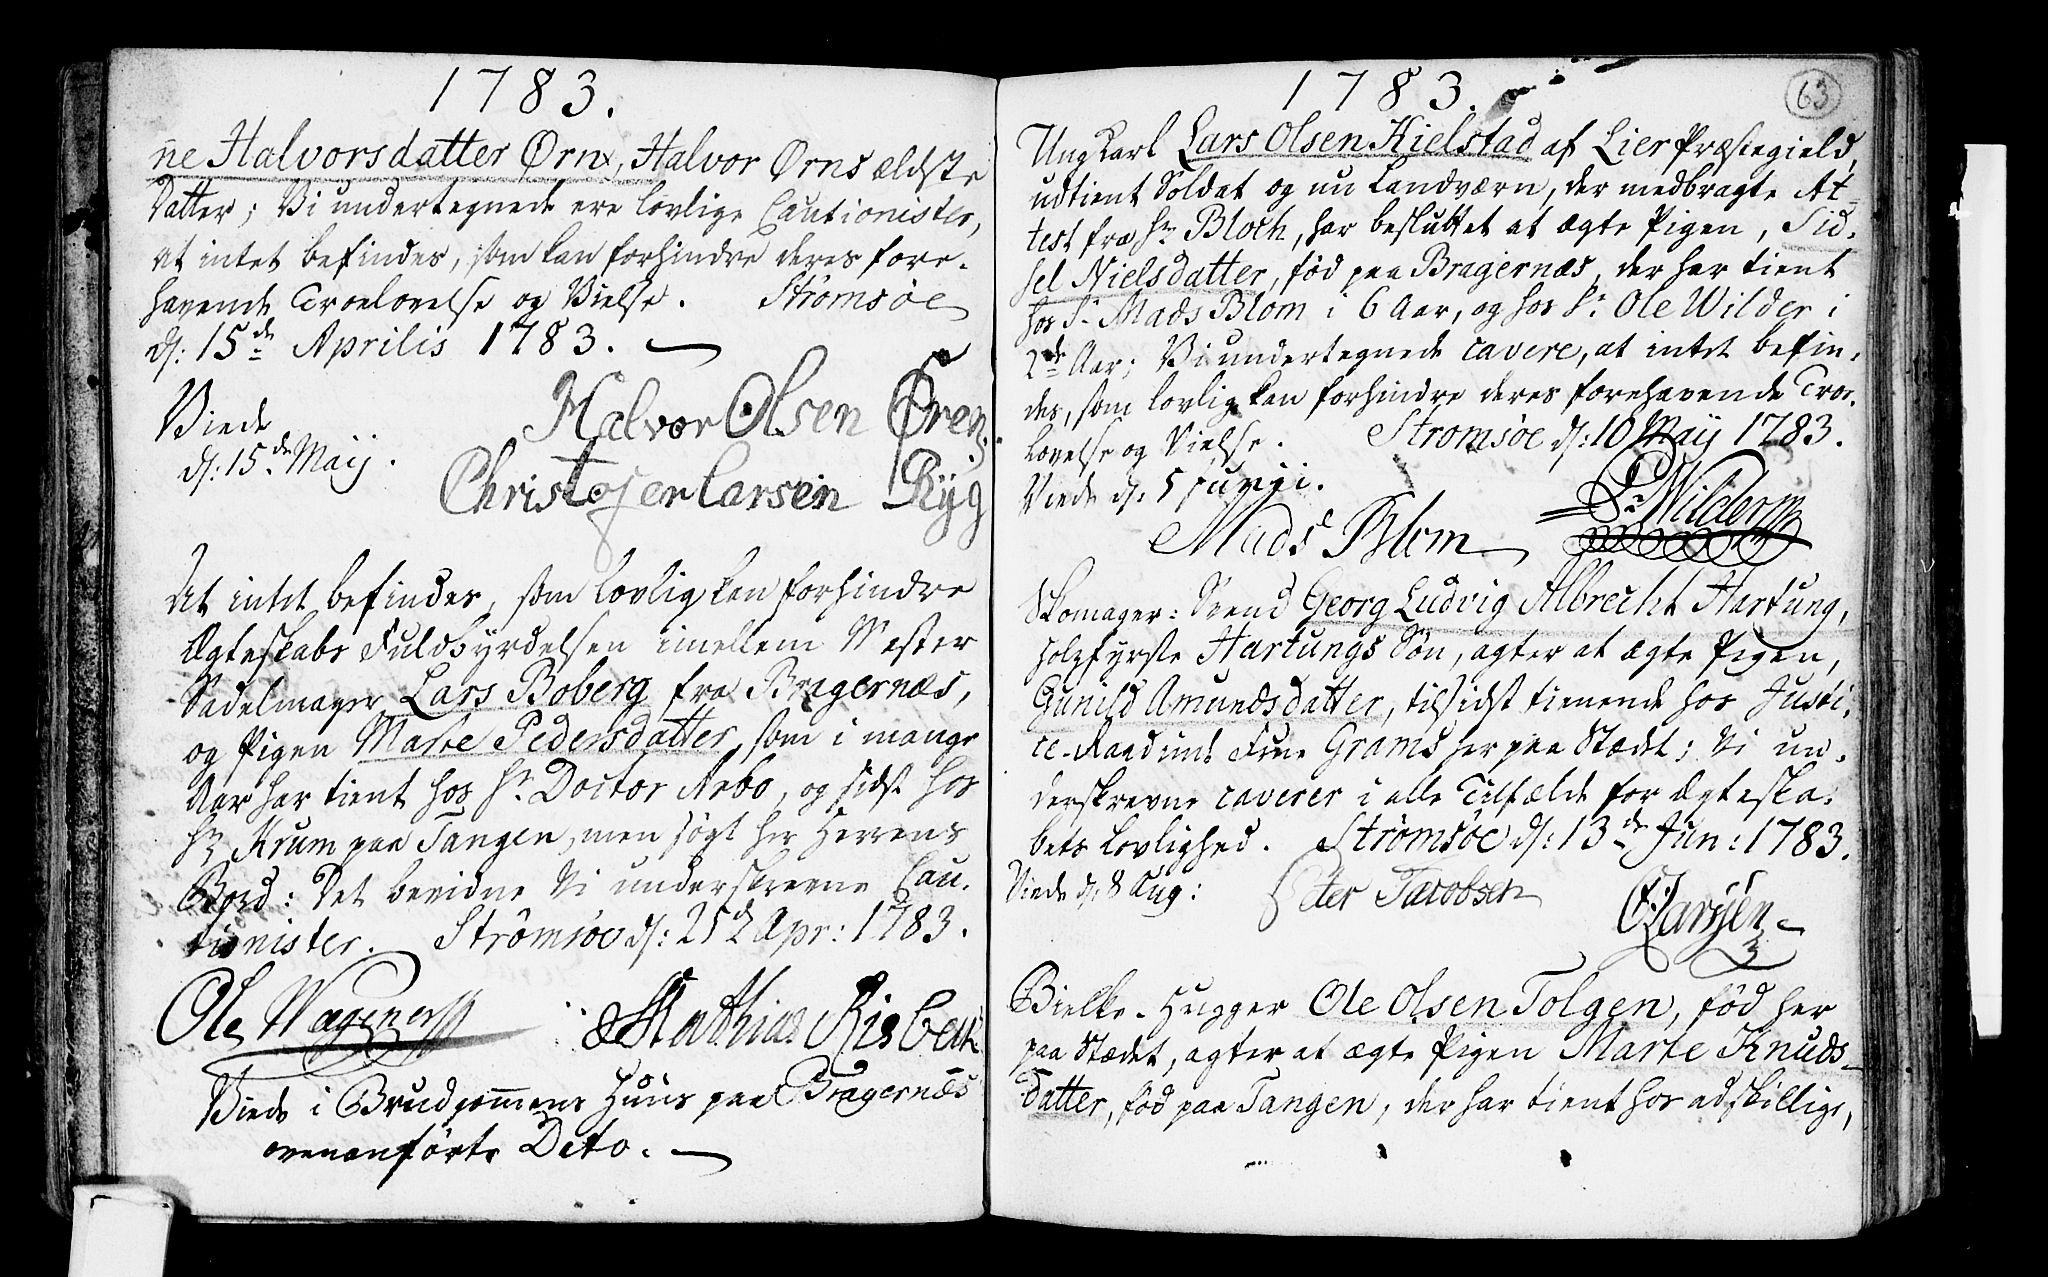 1783.
ne Halvorsdatter Ørn, Halvor Ørns ældste
Datter; Vi undertegnede ere lovlige Cautionister,
at intet befindes, som kan forhindre deres fore-
havende Troelovelse og Vielse. Strømsøe
d: 15de Aprilis 1783.
Viede
d: 15de Maij.
Halvor Olsen Ören
Christofer Larsen Ryg
At intet befindes, som lovlig kan forhindre
Ægteskabs Fuldbyrdelsen imellem Mester
Sadelmager Lars Boberg fra Bragernæs,
og Pigen Marte Pedersdatter, som i mange
Aar har tient hos Hr Doctor Arbo, og sidst hos
Hr Krum paa Tangen, men søgt her Herrens
Bord: Det bevidne Vi underskrevne Cau-
tionister. Strømsöe d: 25d Apr: 1783.
Ole Wagener Matthias Risbech
Viede i Brudgomens Huus paa Bragernæs
ovenanførte Dato.
1783.
63
Ungkarl Lars Olsen Kielstad af Lier Præstegield,
udtient Soldat og nu Landværn, der medbragte At-
test fra Hr Bloch, har besluttet at ægte Pigen, Sid-
sel Nielsdatter, fød paa Bragernæs, der har tient
hos Sr Mads Blom i 6 Aar, og hos Sr Ole Wilder i
2de Aar; Vi undertegnede cavere, at intet befin-
des, som lovlig kan forhindre deres forehavende Troe-
lovelse og Vielse. Strømsøe d: 10 Maij 1783.
Viede d: 5 Junii.
Mads Blom O: Wilder
Skomager-Svend Georg Ludvig Albrecht Hartung,
Holzfyrste Hartungs Søn, agter at ægte Pigen,
Gunild Amundsdatter, tilsidst tienende hos Justi-
ce-Raadinde Frue Grams her paa Stædet; Vi un-
derskrevne caverer i alle Tilfælde for Ægteska-
bets Lovlighed. Strømsöe d: 13de Jun: 1783.
Viede d: 8 Aug:
Peter Jacobsen O: Larssen
Bielke-Hugger Ole Olsen Tolgen, fød her
paa Stædet, agter at ægte Pigen Marte Knuds-
datter, fød paa Tangen, der har tient hos adskillige,